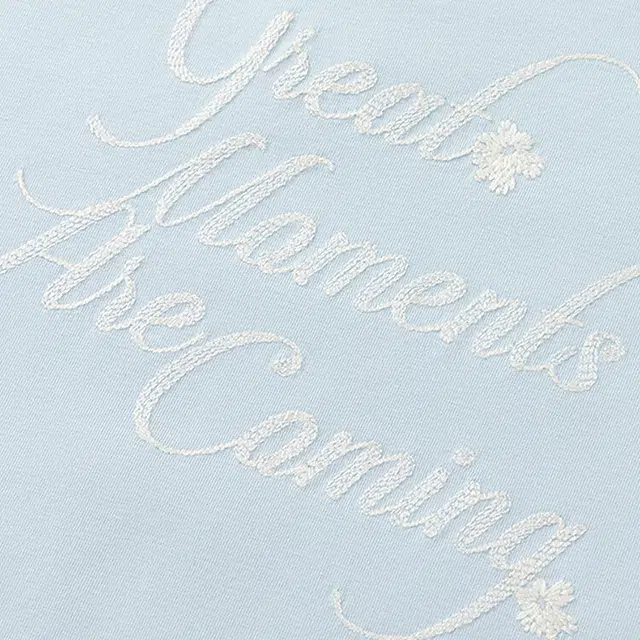 Great
Moments
Are
Coming